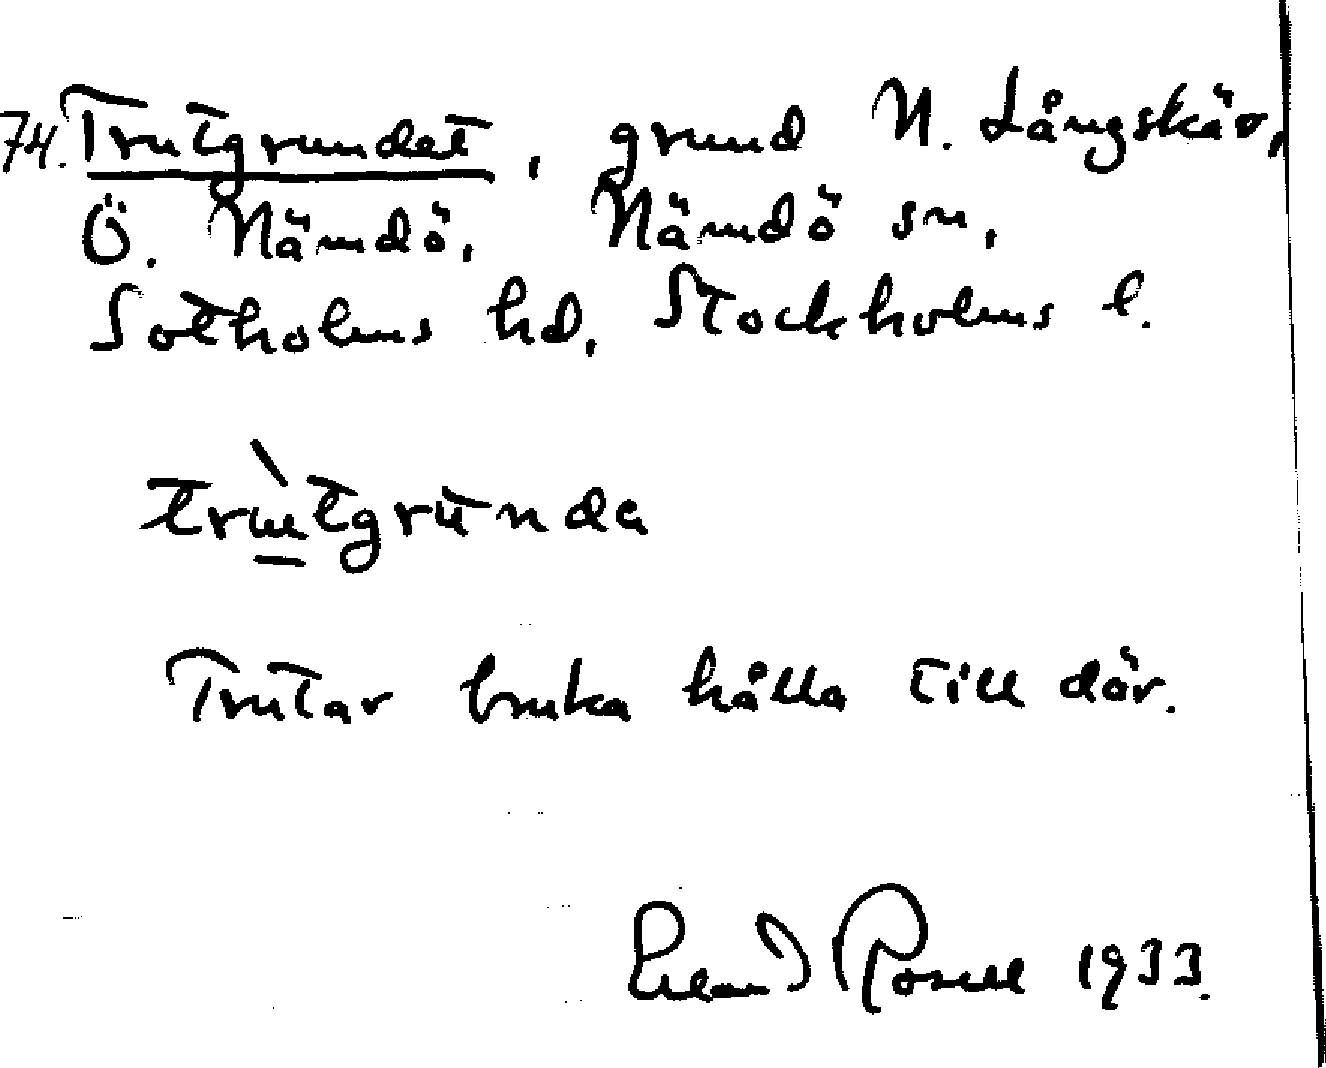 74. Trutgrundet, grund N. Långskär,
Ö. Nämdö, Nämdö sn,
Sotholms hd, Stockholms l.
trùtgrunda
Trutar bruka hålla till där.
Erland Rosell 1933.